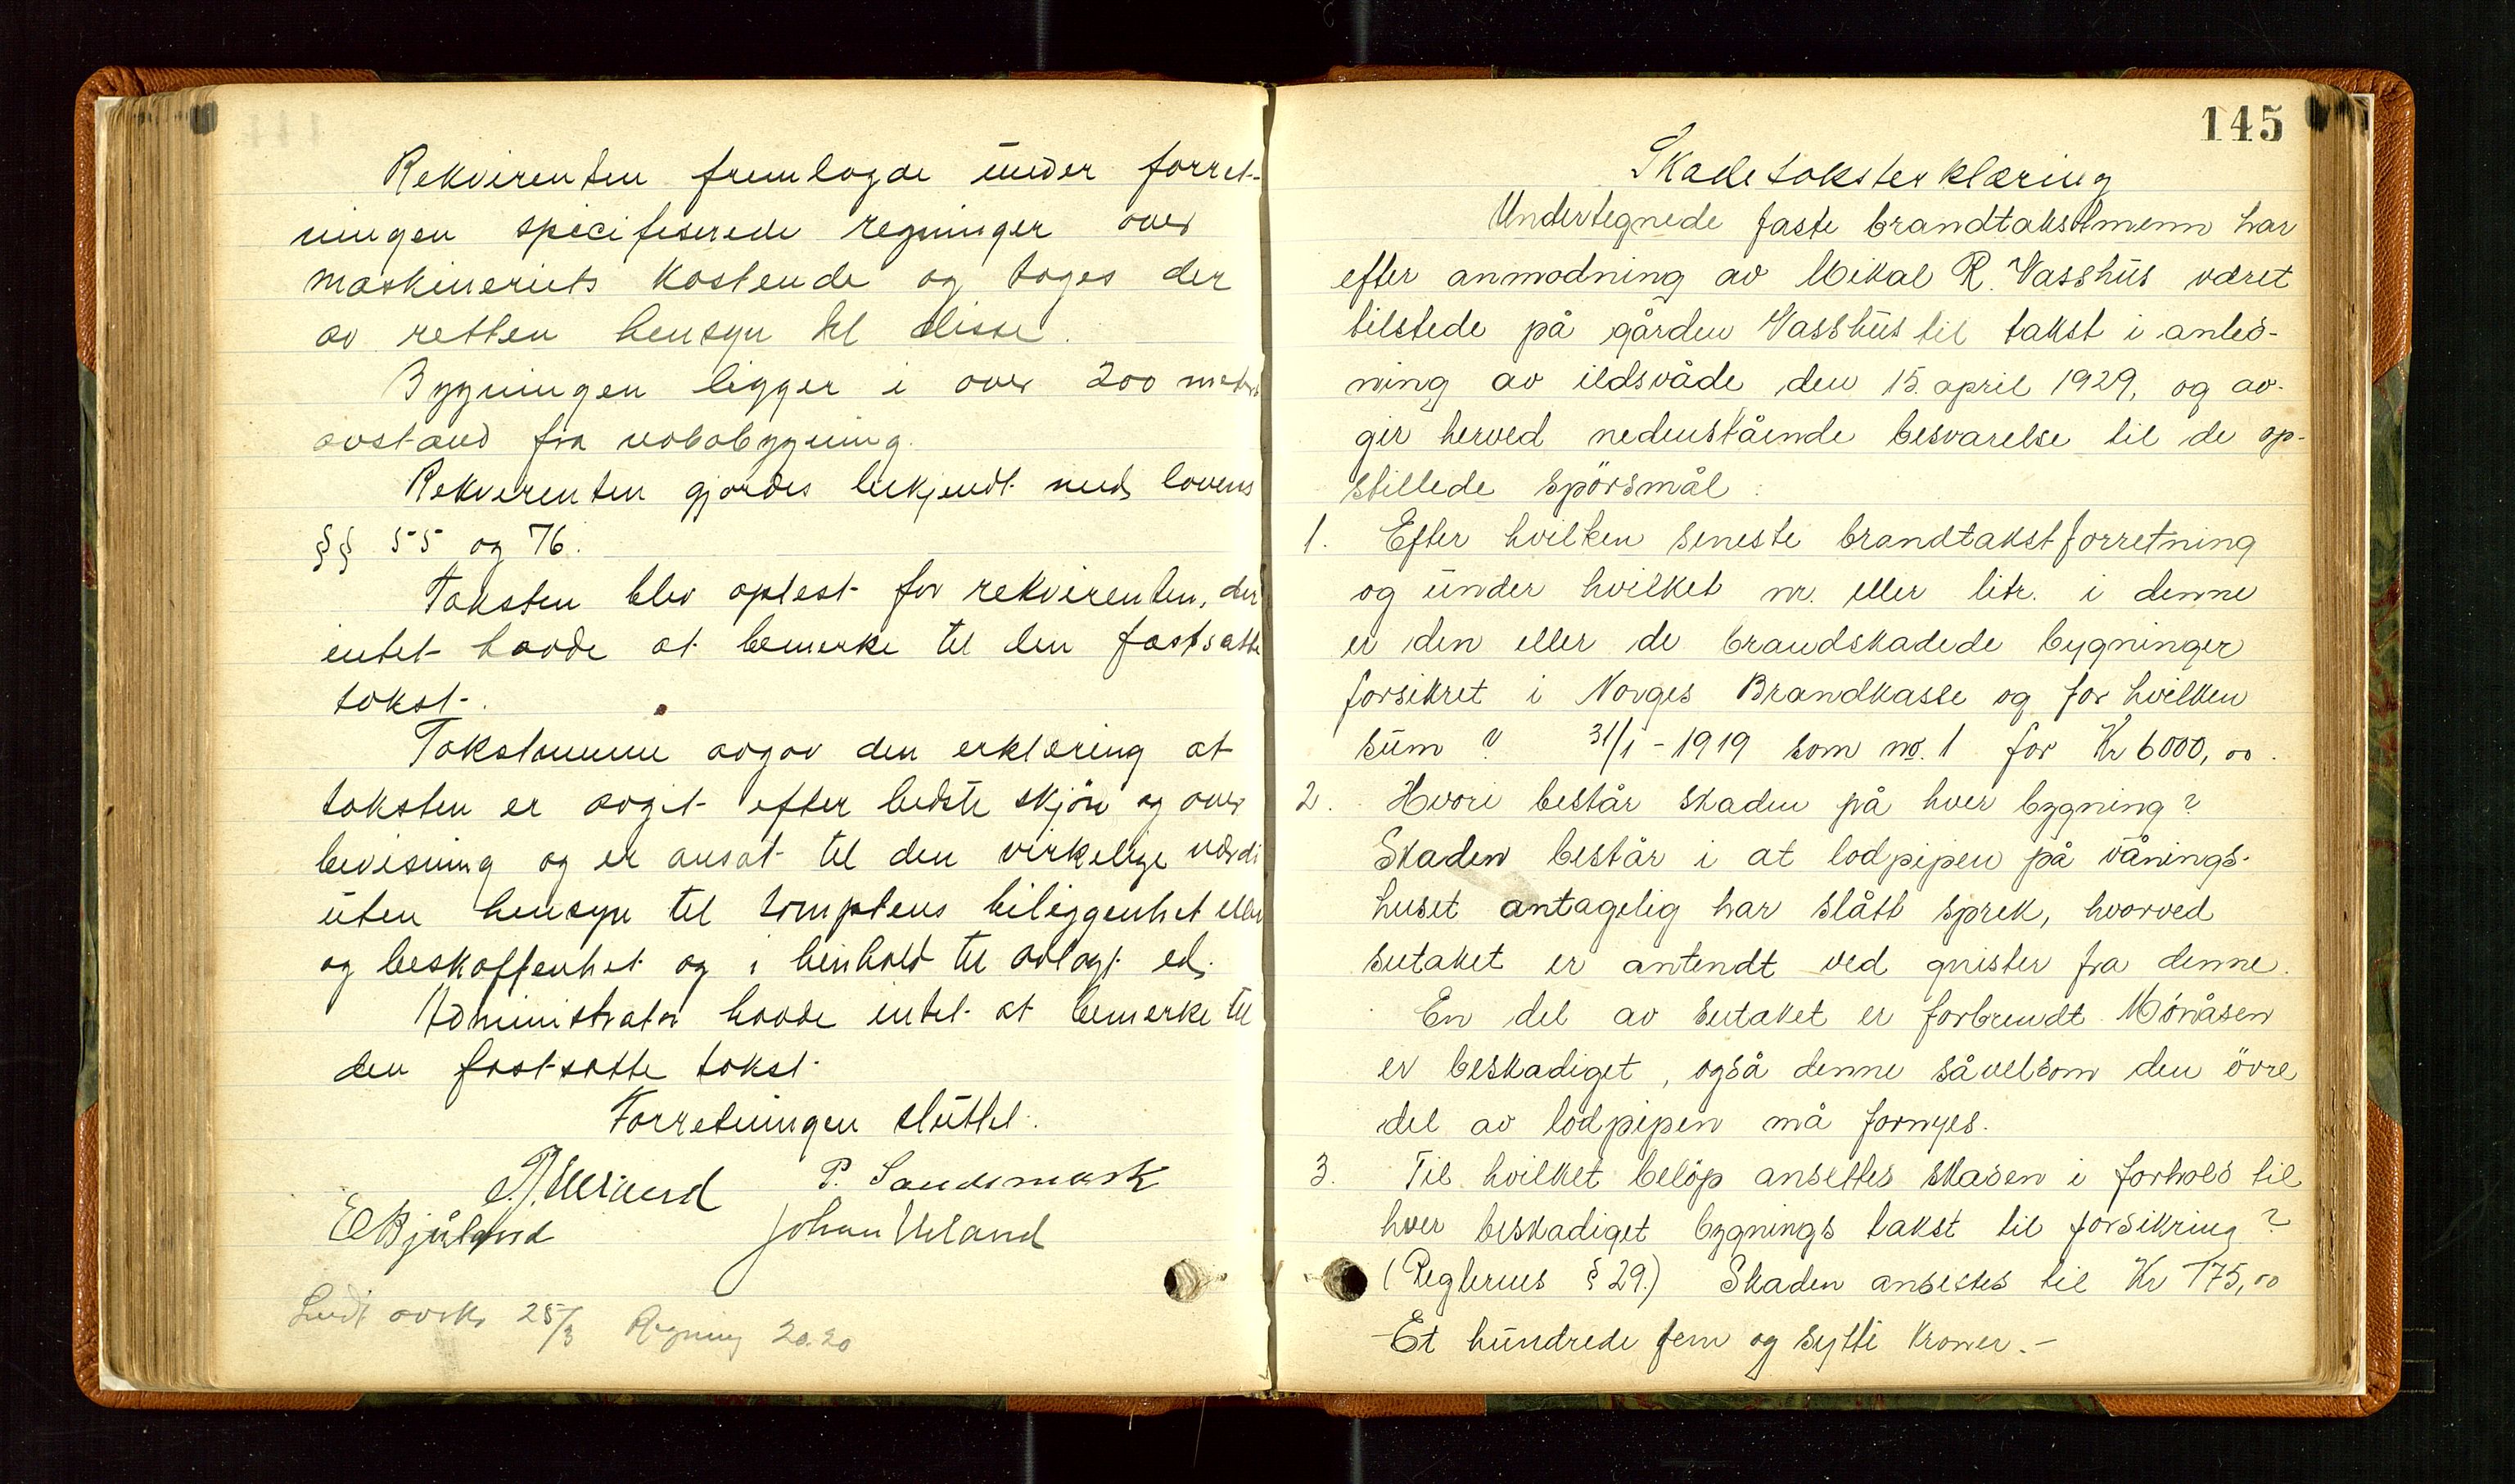 Rekvirenten fremlagde under forret-
ningen specifiserede regninger over
maskineriets kostende og toges der
av retten hensyn til disse.
Bygningen ligger i over 200 meters
avstand fra nabobygning.
Rekvirenten gjordes bekjendt med lovens
§§ 55 og 76.
Taksten blev oplest for rekvirenten, der
intet havde at bemerke til den fastsatte
takst.
Takstmenne avgav den erklæring at
taksten er avgit efter bedste skjön og over
bevisning og er ansat til den virkelige værdi
uten hensyn til tomptens beliggenhet eller
og beskaffenhet og i henhold til avlagt ed.
Administrator havde intet at bemerke til
den fastsatte takst.
Forretningen sluttet.
P. Sandsmark
E Bjåland Johan Ueland
Sendt avsk. 25/3 Regning 20.20
145
Skadetaksterklæring
Undertegnede faste brandtakstmenn har
efter anmodning av Mikal R. Vasshus været
tilstede på gården Vasshus til takst i anled-
ning av ildsvåde den 15. april 1929, og av-
gir herved nedenstående besvarelse til de op-
stillede spörsmål:
1. Efter hvilken seneste brandtakstforretning
og under hvilket nr. eller litr. i denne
er den eller de brandskadede bygninger
forsikret i Norges Brandkasse og for hvilken
sum? 31/1-1919 som no. 1 for Kr 6000,00.
2. Hvori består skaden på hver bygning?
Skaden består i at lodpipen på vånings-
huset antagelig har slått sprek, hvorved
sutaket er antendt ved gnister fra denne.
En del av sutaket er forbrendt. Mönåsen
er beskadiget, også denne såvelsom den övre
del av lodpipen må fornyes.
3. Til hvilket belöp ansettes skaden i forhold til
hver beskadiget bygnings takst til forsikring?
(Reglernes § 29.) Skaden ansettes til Kr 175,00
-Et hundrede fem og sytti kroner.-